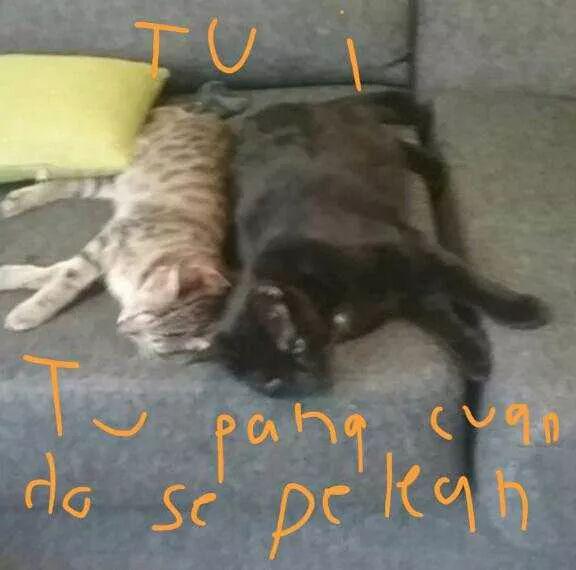 TU i
Tu pana cuan
do se pelean